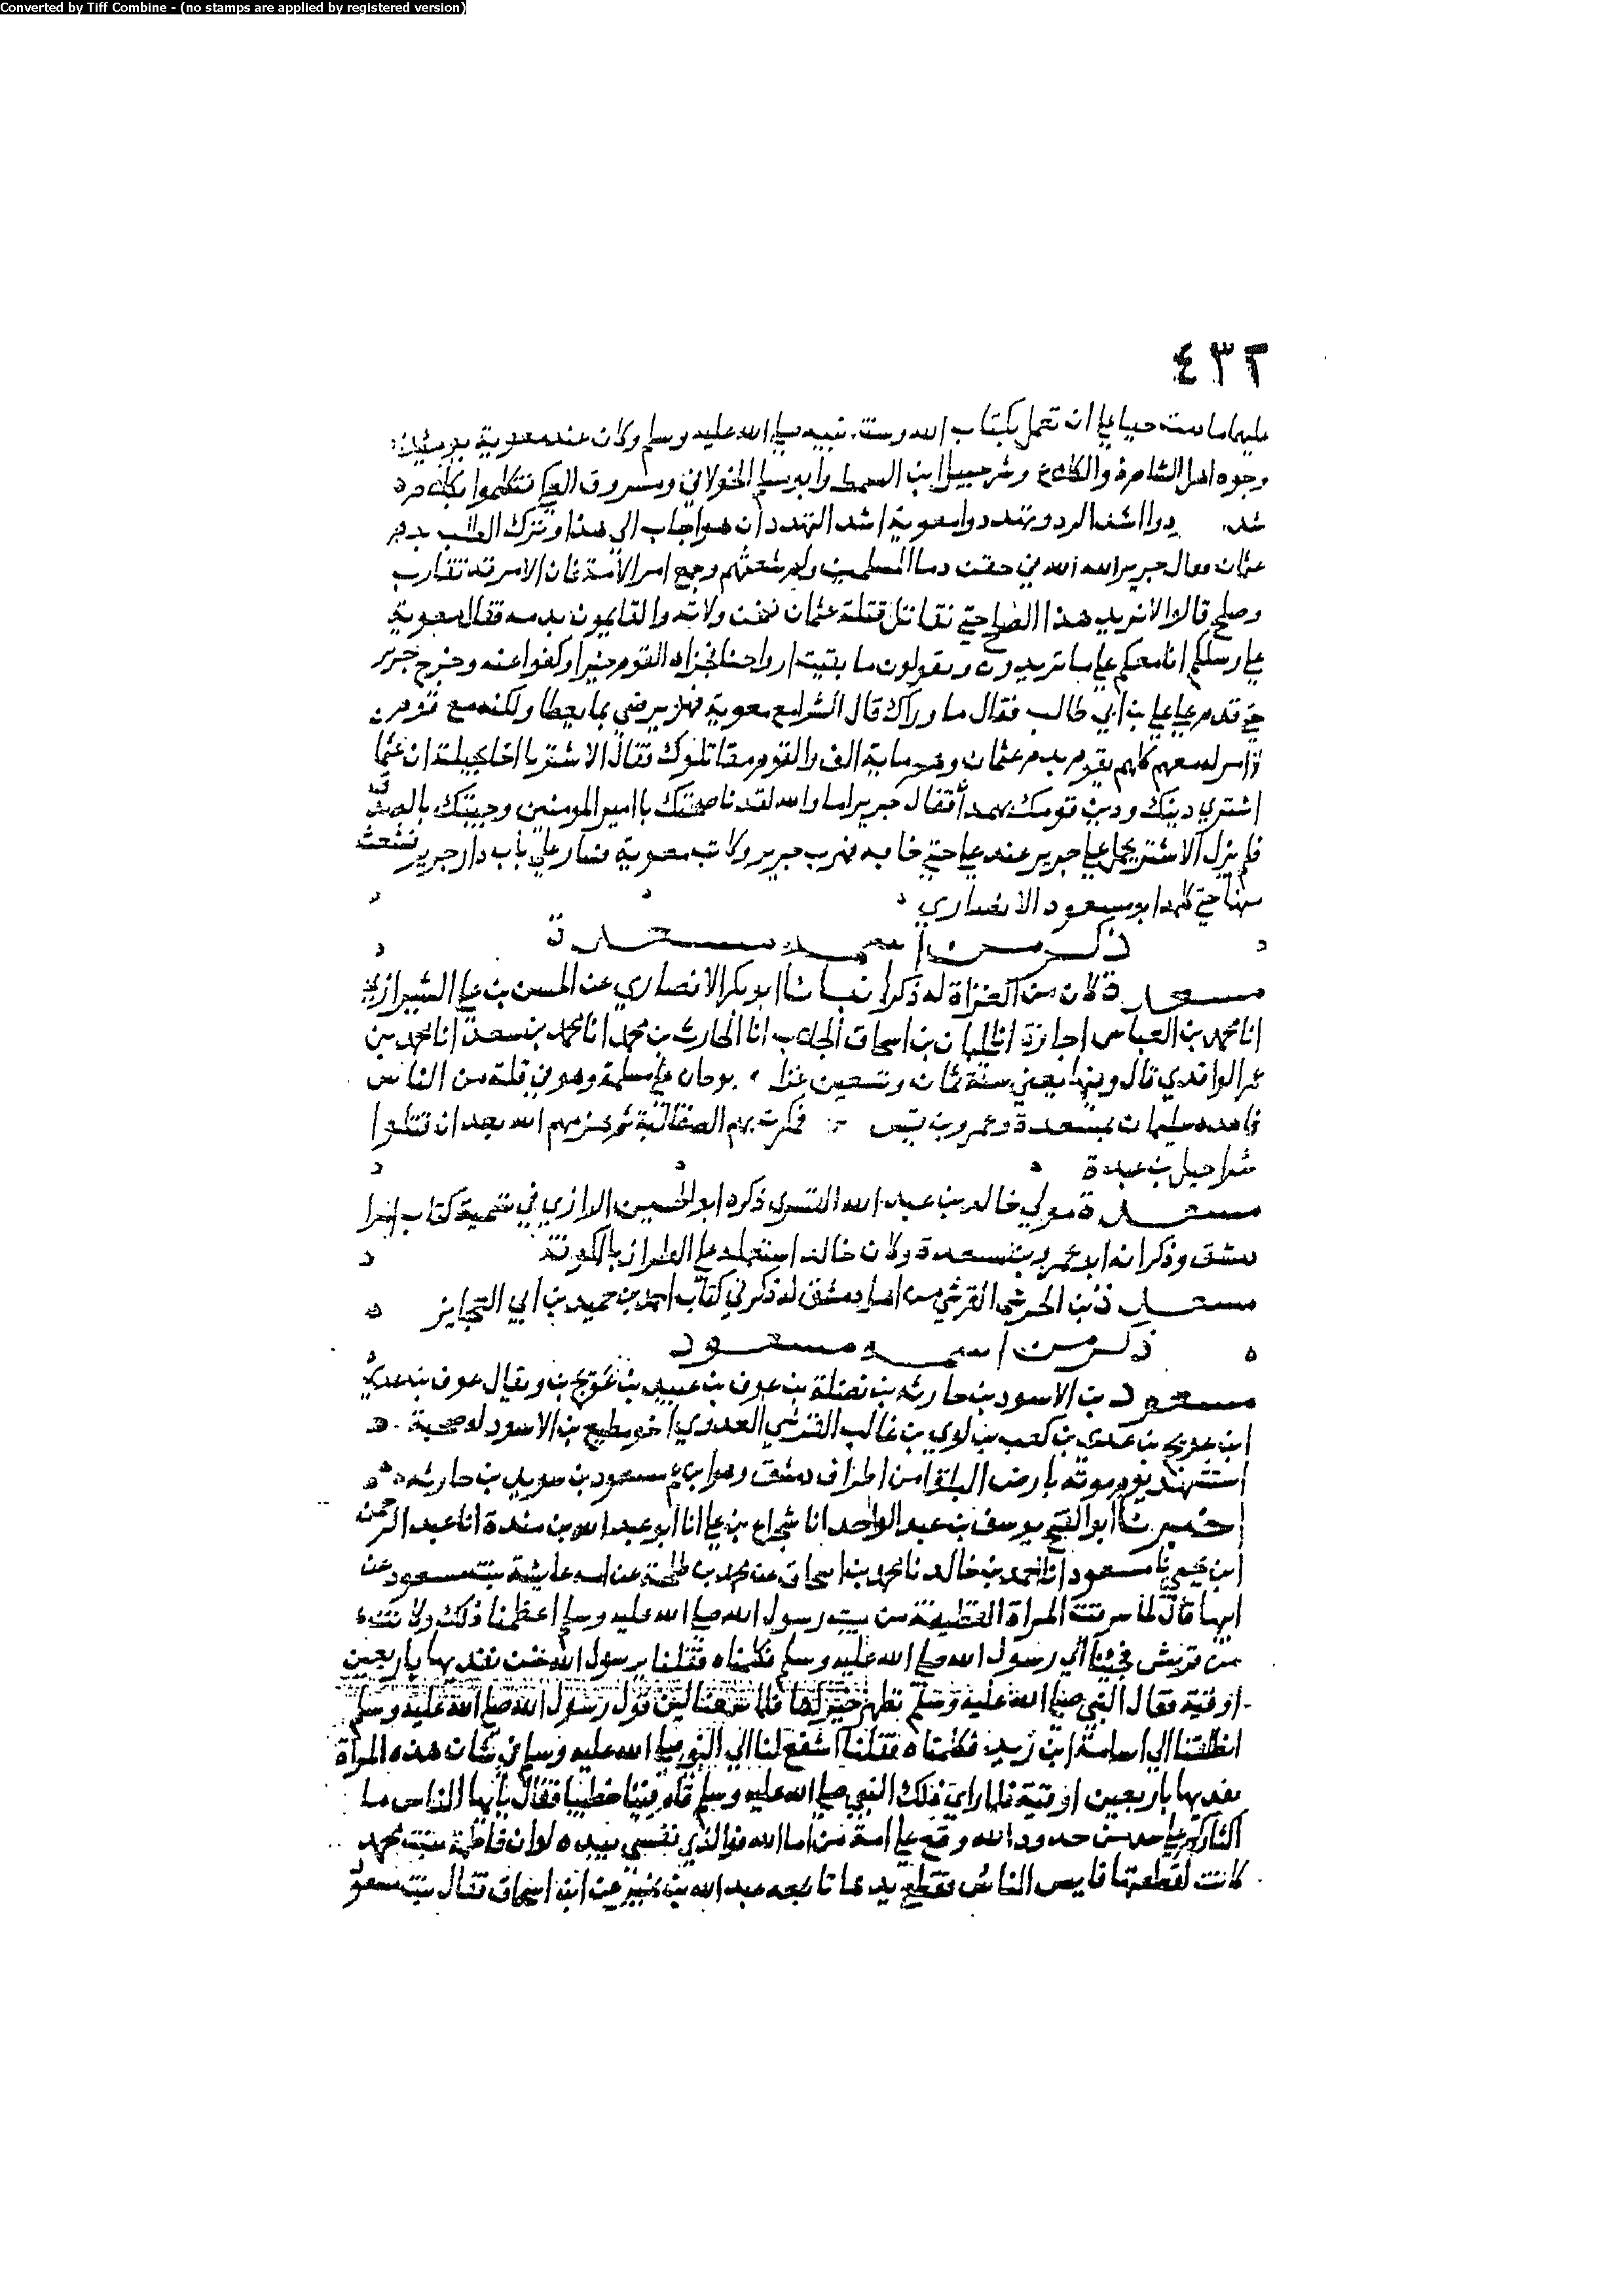 Converted by Tiff Combine - (no stamps are applied by registered version)
٤٣٢
عليها ما دمت حيا علي ان تعمل بكتاب الله وسنة نبيه صلي الله عليه وسلم وكان عند معوية يومئذ
وجوه اهل الشام ذو الكلاع وشرحبيل ابن السمط وابو مسلم الخولاني ومسروق العكي فتكلموا بكلام
شد يدوا اشد الرد وتهددوا معوية اشد التهدد ان هو اجاب الي هذا وترك الطلب بدم
عثمان فقال جرير الله الله في حقن دما المسلمين ولم شعثهم وجمع امر الامة فان الامر قد تقارب
وصلح قالوا لا نريد هذا الصلح حتي نقاتل قتلة عثمان فنحن ولاته والقايمون بدمه فقال معوية
علي رسلكم انا معكم علي ما تريدون وتقولون ما بقيت ارواحنا فجزاه القوم خيرا وكفوا عنه وخرج جرير
حتي قدم علي علي بن ابي طالب فقال ما وراك قال الشر مع معوية فلم يرضي بما يعطا ولكنه مع قوم من
امر له معهم كلهم يقوم بدم عثمان وهم ماية الف والقوم مقاتلوك فقال الاشتر يا اخا بجيلة ان عثما
اشتري دينك ودين قومك بهمدان فقال جرير اما والله لقد ناصحتك يا امير المومنين وجيتك بالصدق
فلم يزل الاشتر يحمل علي جرير عند علي حتي خافه فهرب جرير وكاتب معوية فسار علي باب دار جرير فشعث
منها حتي كلمه ابو مسعود الانصاري
ذكر من اسمه مسعدة
مسعدة كان من الغزاة له ذكر انباتا ابو بكر الانصاري عن الحسن بن علي الشيرازي
انا محمد بن العباس اجازة انا سليمان بن اسحاق الجلاب انا الحارث بن محمد انا محمد بن سعد انا محمد بن
عمر الواقدي قال وفيها يعني سنة ثمان وتسعين غزا برجان علي مسلمة وهو في قلة من الناس
فامده سليمان بمسعدة وعمرو بن قيس فمكرت بهم الصقالبة ثم هزمهم الله بعد ان قتلوا
شراحيل بن عبدة
مسعدة مولي خالد بن عبد الله القسري ذكره ابو الحسين الرازي في تسمية كتاب امرا
دمشق وذكر انه ابو عمرو بن مسعدة وكان خالد استعمله علي الطراز بالكوفة
مسعدة بن الحرشي القرشي من اهل دمشق له ذكر في كتاب احمد بن حميد بن ابي العجايز
ذكر من اسمه مسعود
مسعود بن الاسود بن حارثة بن نضلة بن عوف بن عبيد بن عويج بن ويقال عوف بن عدي
ابن عويج بن عدي بن كعب بن لوي بن غالب القرشي العدوي اخو مطيع بن الاسود له صحبة
استشهد يوم موتة بارض البلقا من اطراف دمشق وهو ابن عم مسعود بن سويد بن حارثة
اخبرنا ابو الفتح يوسف بن عبد الواحد انا شجاع بن علي انا ابو عبد الله بن مندة انا عبد الرحمن
ابن يحيي نا مسعود انا احمد بن خالد نا محمد بن اسحاق عن محمد بن طلحة عن امه عايشة بنت مسعود عن
ابيها قال لما سرقت المراة القطيفة من بيت رسول الله صلي الله عليه وسلم اعظمنا ذلك وكانت
من قريش فجينا الي رسول الله صلي الله عليه وسلم فكلمناه فقلنا يرسول الله نحن نفديها باربعين
اوقية فقال النبي صلي الله عليه وسلم تطهر خير لها فلما سمعنا لين قول رسول الله صلي الله عليه وسلم
انطلقنا الي اسامة ابن زيد فكلمناه فقلنا اشفع لنا الي النبي صلي الله عليه وسلم في شان هذه المراة
نفديها باربعين اوقية فلما راي ذلك النبي صلي الله عليه وسلم قام فينا خطيبا فقال يايها الناس ما
اكثاركم علي حد من حدود الله وقع علي امة من اما الله فوالذي نفسي بيده لو ان فاطمة بنت محمد
كانت لقطعتها فايس الناس فقطع يدها تابعه عبد الله بن نمير عن ابن اسحاق فقال بنت مسعود